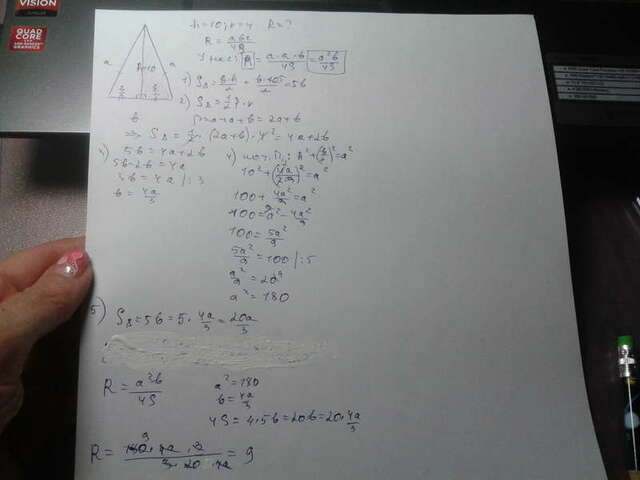 VISION
QUAD
CORE
h=10; r=4 R=?
R = abc/4S
У нас: R = a·a·b/4S = a²b/4S
a h=10 a
b/2 b/2
b
1) S△ = b·h/2 = b·10⁵/2 = 5b
2) S△ = 1/2 P·r
P=a+a+b=2a+b
⇒ S△ = 1/2 · (2a+b)·4² = 4a+2b
3) 5b=4a+2b
5b-2b=4a
3b=4a /:3
b = 4a/3
4) h²+(b/2)²=a²
10²+(4a/2·3)²=a²
100+ 4a²/9 =a²
100=a²- 4a²/9
100= 5a²/9
5a²/9 =100 /:5
a²/9 = 20
a²=180
5) S△=5b=5· 4a/3 = 20a/3
R = a²b/4S
a²=180
b= 4a/3
4S=4·5b=20b=20· 4a/3
R = 180·4a·3/3·20·4a = 9